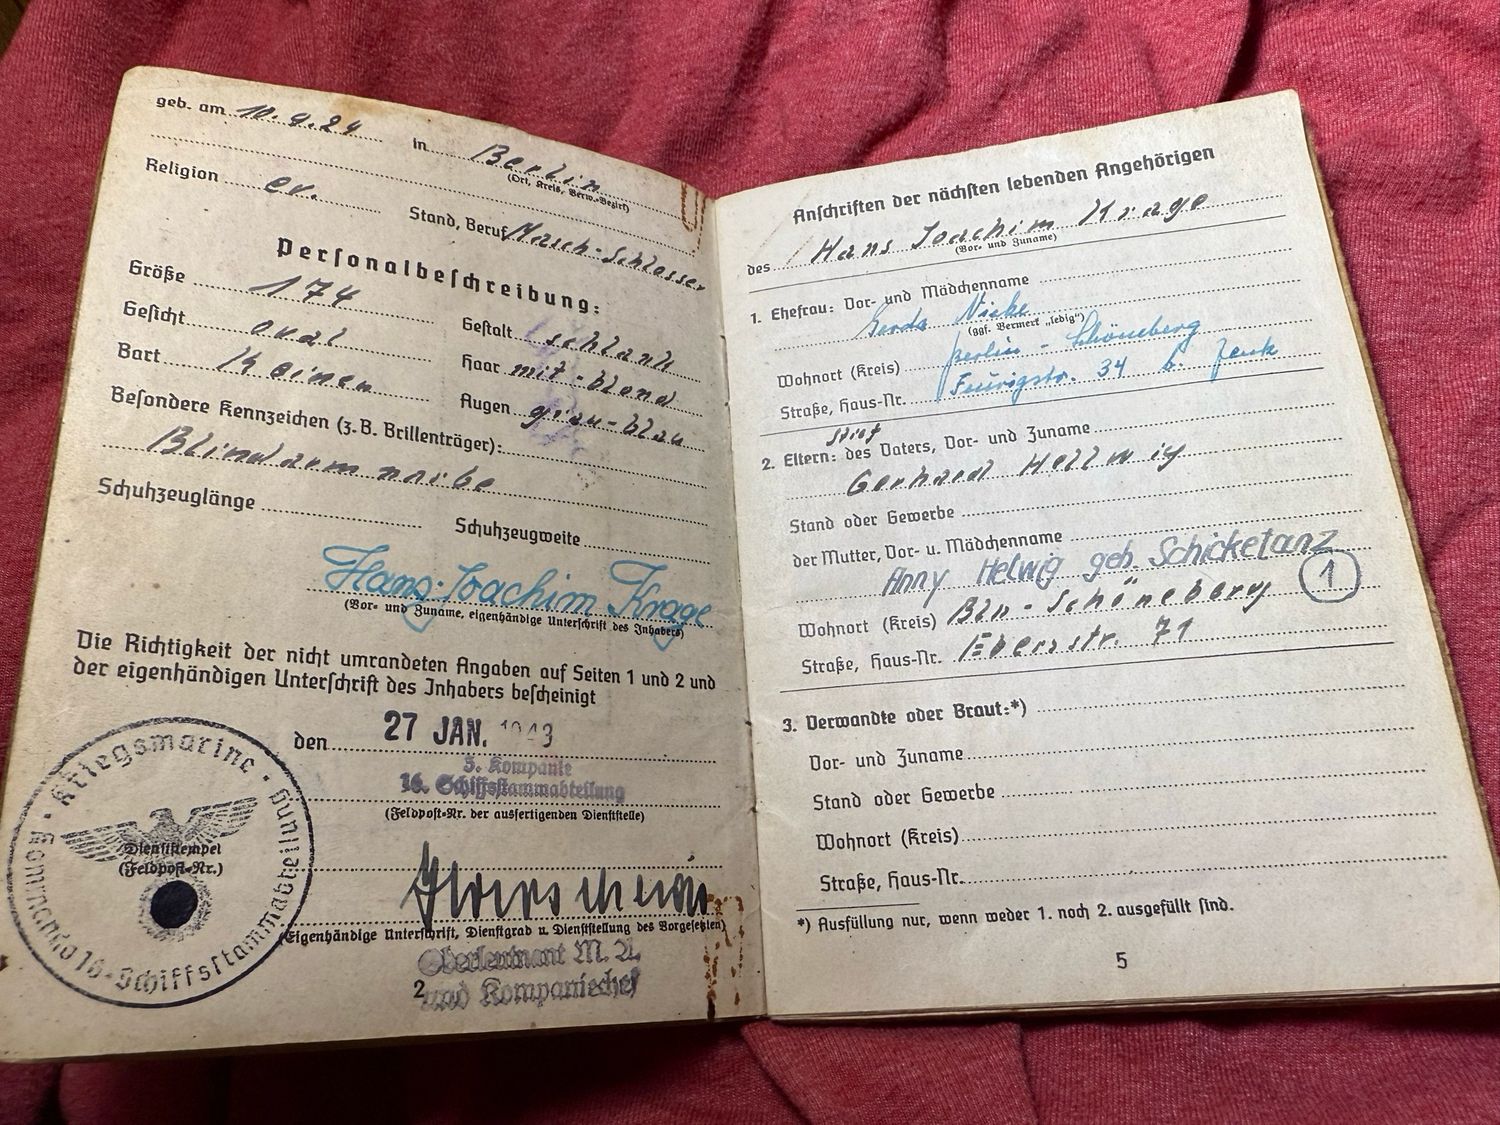 geb. am 10.9.24 in Berlin
(Ort, Kreis, Berw.-Bezirk)
Religion ev. Stand, Beruf Masch-Schlosser
Personalbeschreibung:
Größe 174 Gestalt schlank
Gesicht oval Haar mit-blond
Bart Keinen Augen grau-blau
Besondere Kennzeichen (z. B. Brillenträger):
Blinddarmnarbe
Schuhzeuglänge Schuhzeugweite
Hans-Joachim Krage
(Vor- und Zuname, eigenhändige Unterschrift des Inhabers)
Die Richtigkeit der nicht umrandeten Angaben auf Seiten 1 und 2 und
der eigenhändigen Unterschrift des Inhabers bescheinigt
den 27 JAN. 1943
3. Kompanie
16. Schiffsstammabteilung
(Feldpost-Nr. der ausfertigenden Dienststelle)
Kriegsmarine
Kommando 16. Schiffsstammabteilung
Dienststempel
(Feldpost-Nr.)
(Eigenhändige Unterschrift, Dienstgrad u. Dienststellung des Vorgesetzten)
Oberleutnant M. A.
und Kompaniechef
2
Anschriften der nächsten lebenden Angehörigen
des Hans Joachim Krage
(Vor- und Zuname)
1. Ehefrau: Vor- und Mädchenname
Gerda Nicke
(ggf. Vermerk „ledig")
Wohnort (Kreis) Berlin-Schöneberg
Straße, Haus-Nr. Feurigstr. 34 b. Jenk
Stief
2. Eltern: des Vaters, Vor- und Zuname
Gerhard Hellwig
Stand oder Gewerbe
der Mutter, Vor- u. Mädchenname
Anny Helwig geb. Schicketanz
1
Wohnort (Kreis) Bln-Schöneberg
Straße, Haus-Nr. Ebersstr. 71
3. Verwandte oder Braut:*)
Vor- und Zuname
Stand oder Gewerbe
Wohnort (Kreis)
Straße, Haus-Nr.
*) Ausfüllung nur, wenn weder 1. noch 2. ausgefüllt sind.
5